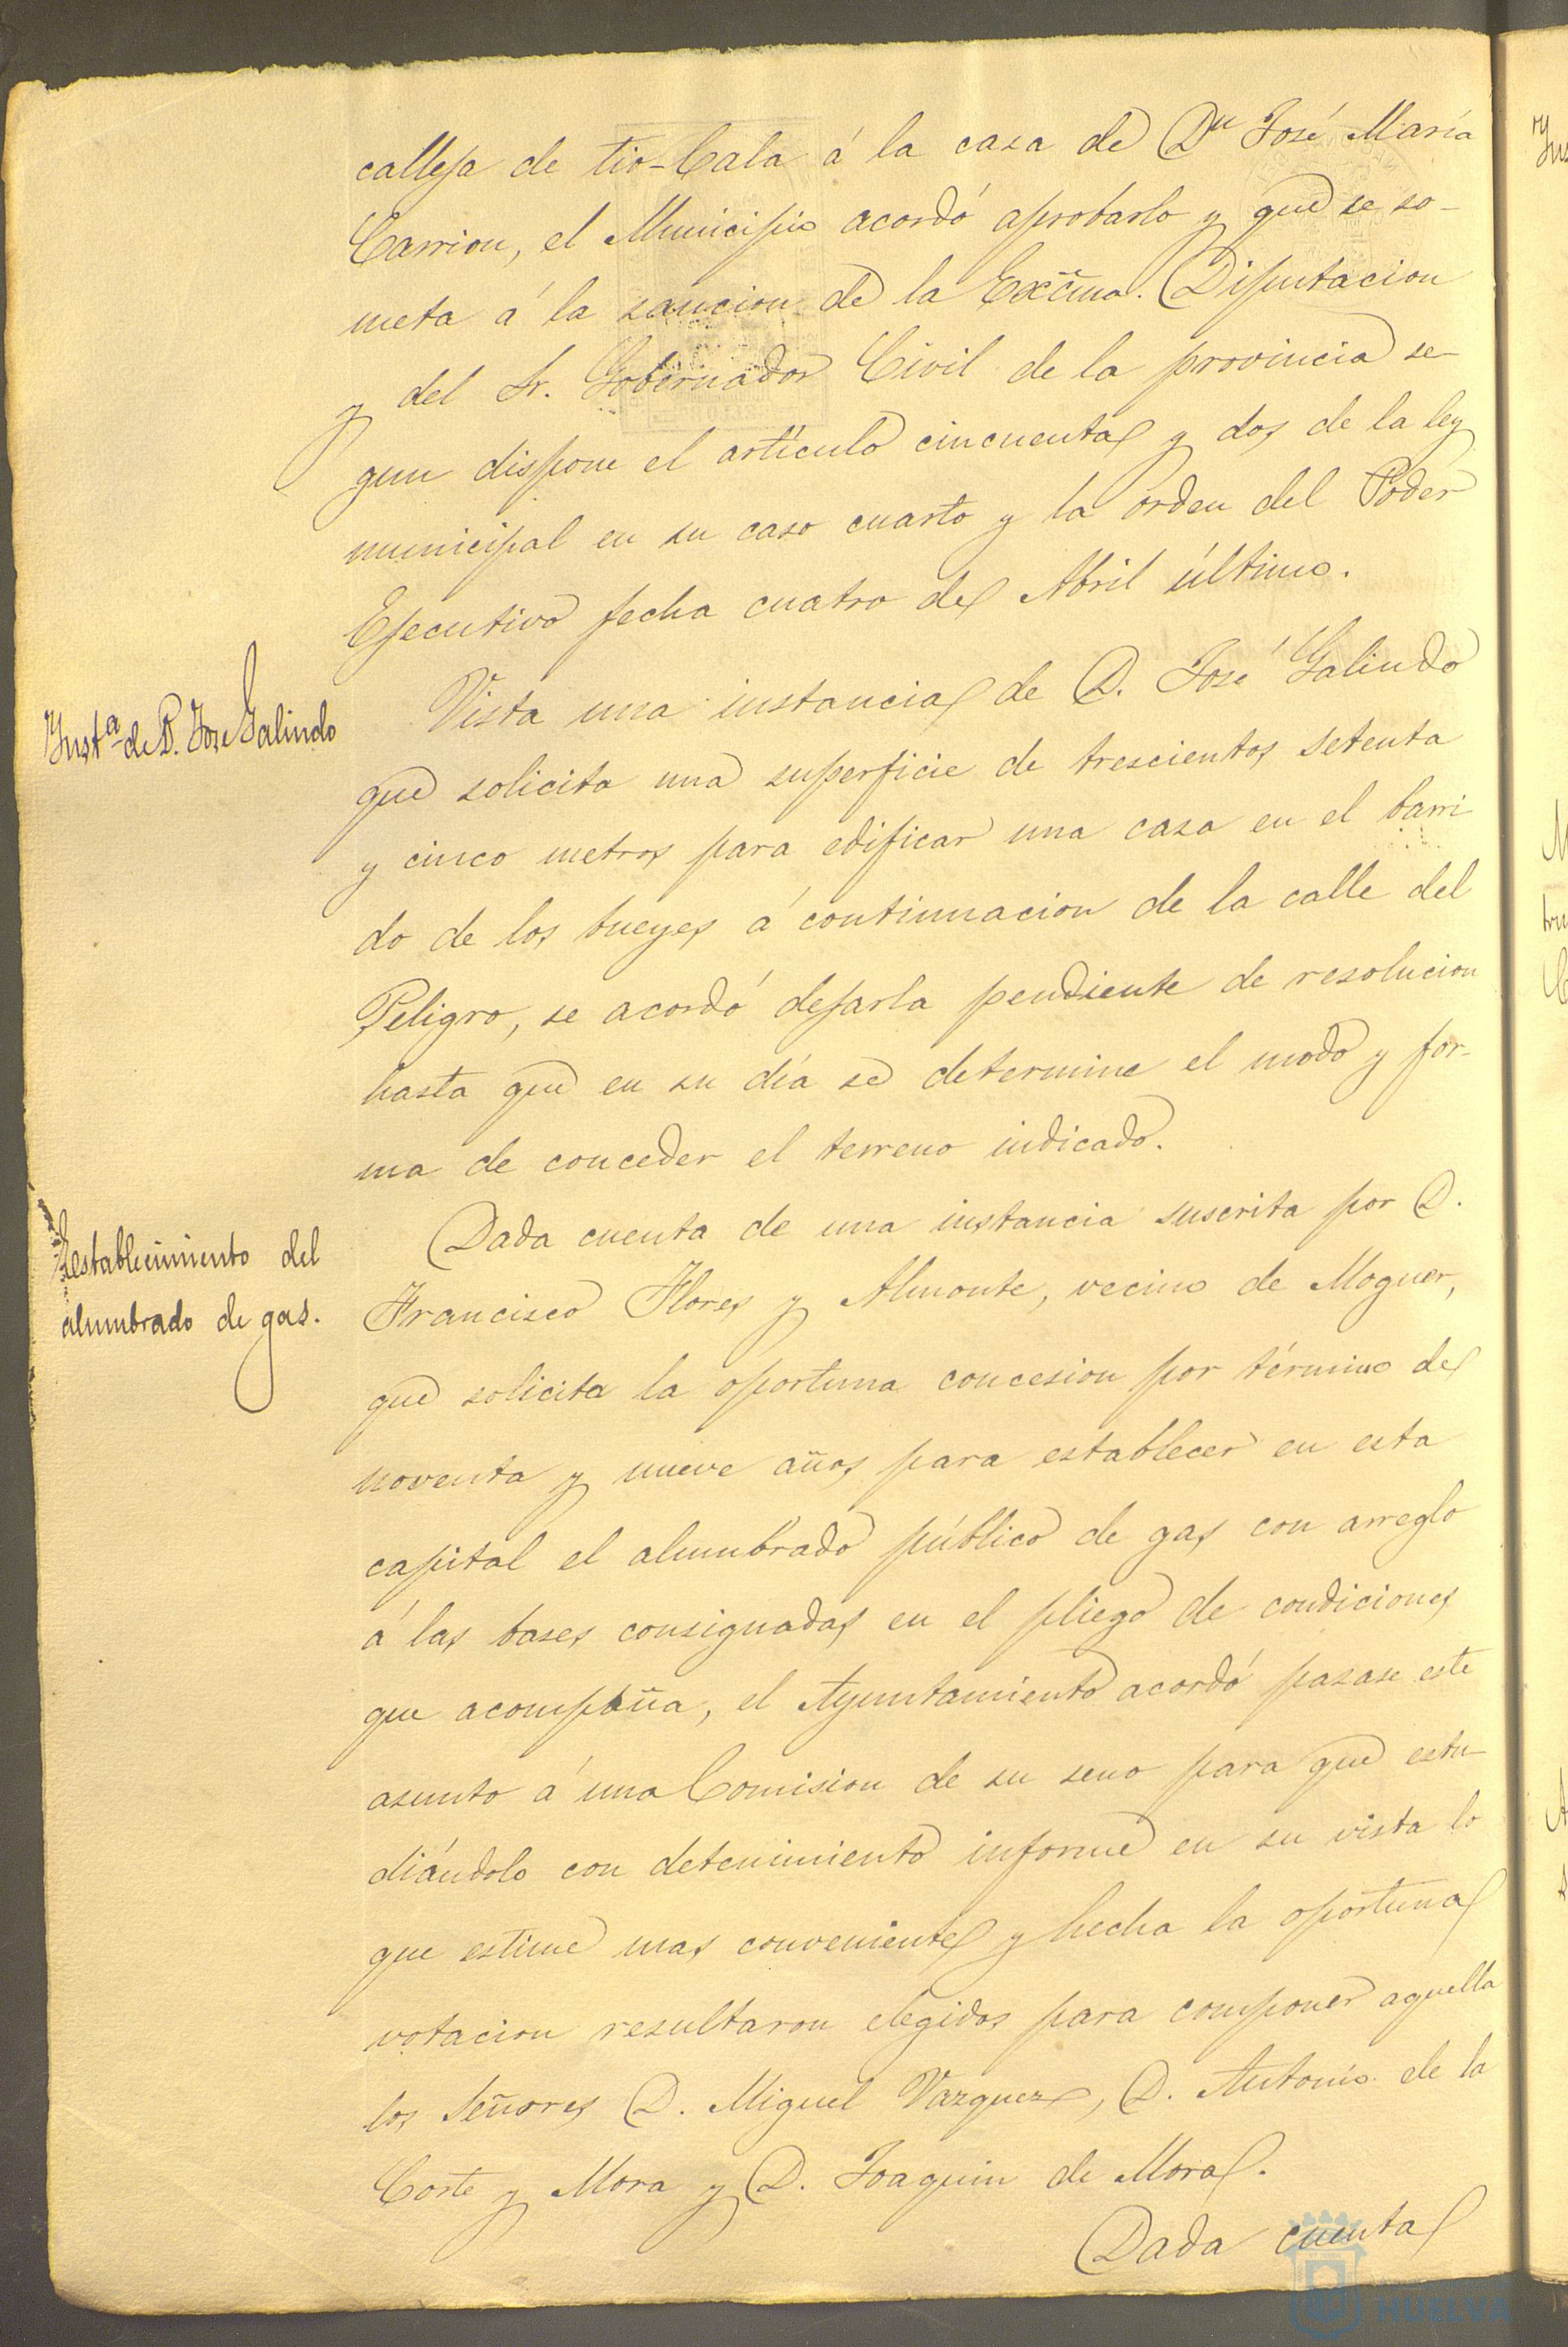 calleja de tio-Cala á la casa de Dn José María
Carrion, el Municipio acordó aprobarlo y que se so-
meta á la sancion de la Excma. Diputacion
y del Sr. Gobernador Civil de la provincia se-
gun dispone el artículo cincuenta y dos de la ley
municipal en su caso cuarto y la orden del Poder
Ejecutivo fecha cuatro de Abril último.
Insta de D. Jose Galindo
Vista una instancia de D. José Galindo
que solicita una superficie de trescientos setenta
y cinco metros para edificar una casa en el barri
do de los bueyes á continuacion de la calle del
Peligro, se acordó dejarla pendiente de resolucion
hasta que en su día se determine el modo y for-
ma de conceder el terreno indicado.
Establecimiento del
alumbrado de gas.
Dada cuenta de una instancia suscrita por D.
Francisco Flores y Almonte, vecino de Moguer,
que solicita la oportuna concesion por término de
noventa y nueve años para establecer en esta
capital el alumbrado público de gas con arreglo
á las bases consignadas en el pliego de condiciones
que acompaña, el Ayuntamiento acordó pasase este
asunto á una Comision de su seno para que estu-
diándolo con detenimiento informe en su vista lo
que estime mas conveniente y hecha la oportuna
votacion resultaron elegidos para componer aquella
los Señores D. Miguel Vazquez, D. Antonio de la
Corte y Mora y D. Joaquin de Mora.
Dada cuenta
HUELVA